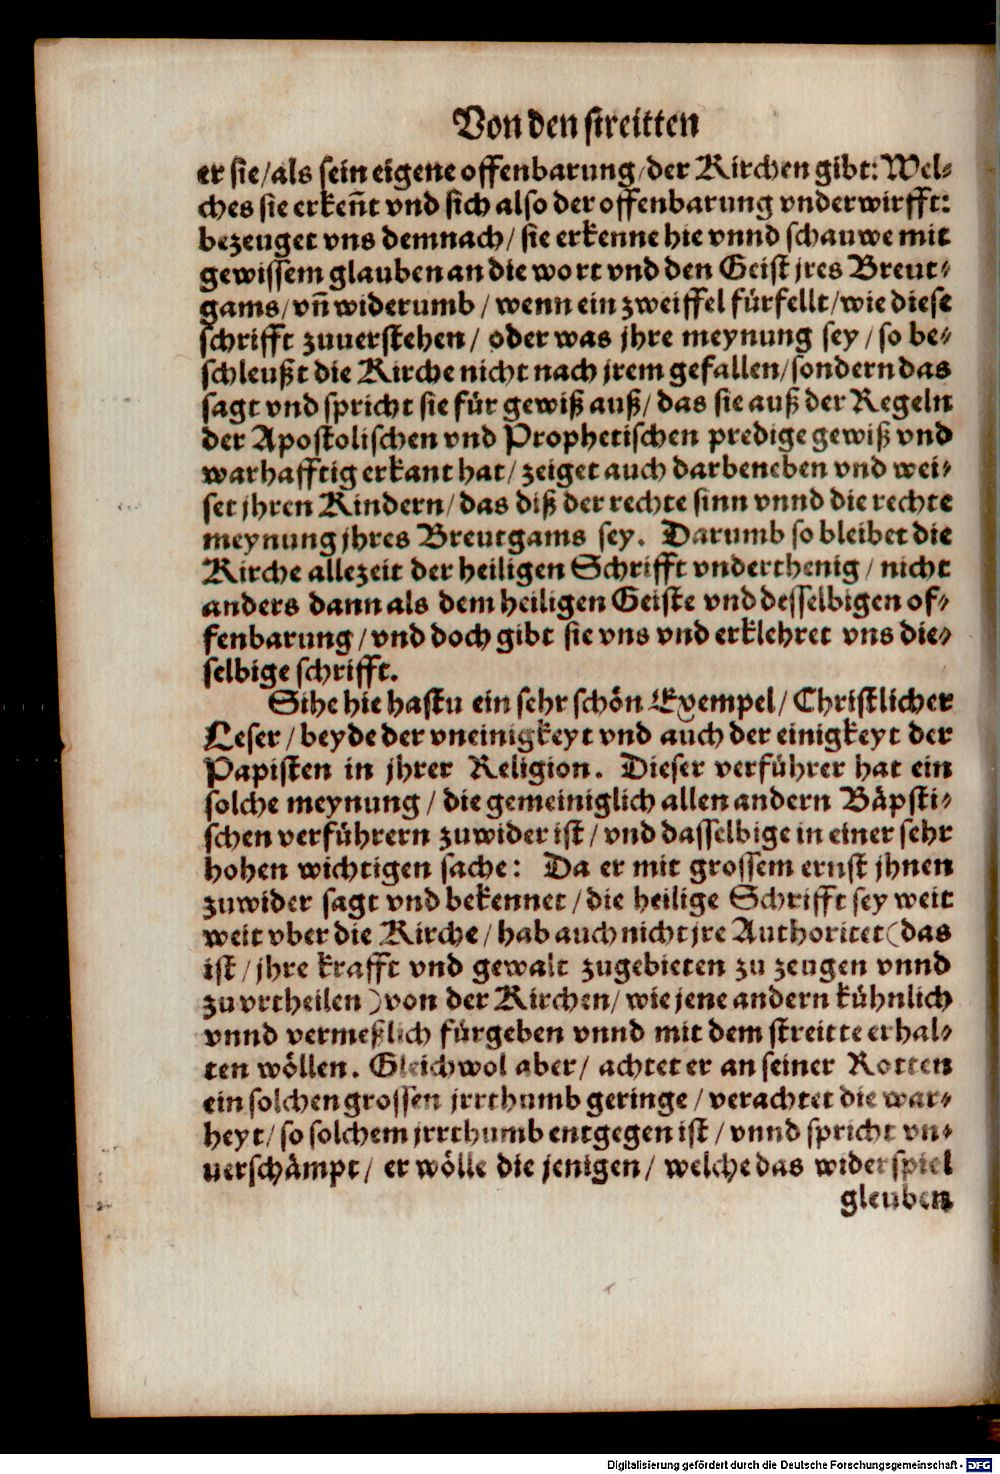 Von den streitten
er sie/als sein eigene offenbarung/der Kirchen gibt: Wel-
ches sie erkeñt vnd sich also der offenbarung vnderwirfft:
bezeuget vns demnach/ sie erkenne hie vnnd schauwe mit
gewissem glauben an die wort vnd den Geist jres Breut-
gams/vñ widerumb / wenn ein zweiffel fürfellt/wie diese
schrifft zuuerstehen/ oder was jhre meynung sey / so be-
schleußt die Kirche nicht nach jrem gefallen/sondern das
sagt vnd spricht sie für gewiß auß/ das sie auß der Regeln
der Apostolischen vnd Prophetischen predige gewiß vnd
warhafftig erkant hat/ zeiget auch darbeneben vnd wei-
set jhren Kindern/ das diß der rechte sinn vnnd die rechte
meynung jhres Breutgams sey. Darumb so bleibet die
Kirche allezeit der heiligen Schrifft vnderthenig / nicht
anders dann als dem heiligen Geiste vnd desselbigen of-
fenbarung /vnd doch gibt sie vns vnd erklehret vns die-
selbige schrifft.
Sihe hie hastu ein sehr schön Exempel/ Christlicher
Leser / beyde der vneinigkeyt vnd auch der einigkeyt der
Papisten in jhrer Religion. Dieser verführer hat ein
solche meynung / die gemeiniglich allen andern Bäpsti-
schen verführern zuwider ist / vnd dasselbige in einer sehr
hohen wichtigen sache: Da er mit grossem ernst jhnen
zuwider sagt vnd bekennet / die heilige Schrifft sey weit
weit vber die Kirche / hab auch nicht jre Authoritet (das
ist / jhre krafft vnd gewalt zugebieten zu zeugen vnnd
zu vrtheilen ) von der Kirchen/ wie jene andern kühnlich
vnnd vermeßlich fürgeben vnnd mit dem streitte erhal-
ten wöllen. Gleichwol aber/ achtet er an seiner Rotten
ein solchen grossen jrrthumb geringe / verachtet die war-
heyt/ so solchem jrrthumb entgegen ist / vnnd spricht vn-
uerschämpt/ er wölle die jenigen/ welche das widerspiel
gleuben
Digitalisierung gefördert durch die Deutsche Forschungsgemeinschaft - DFG